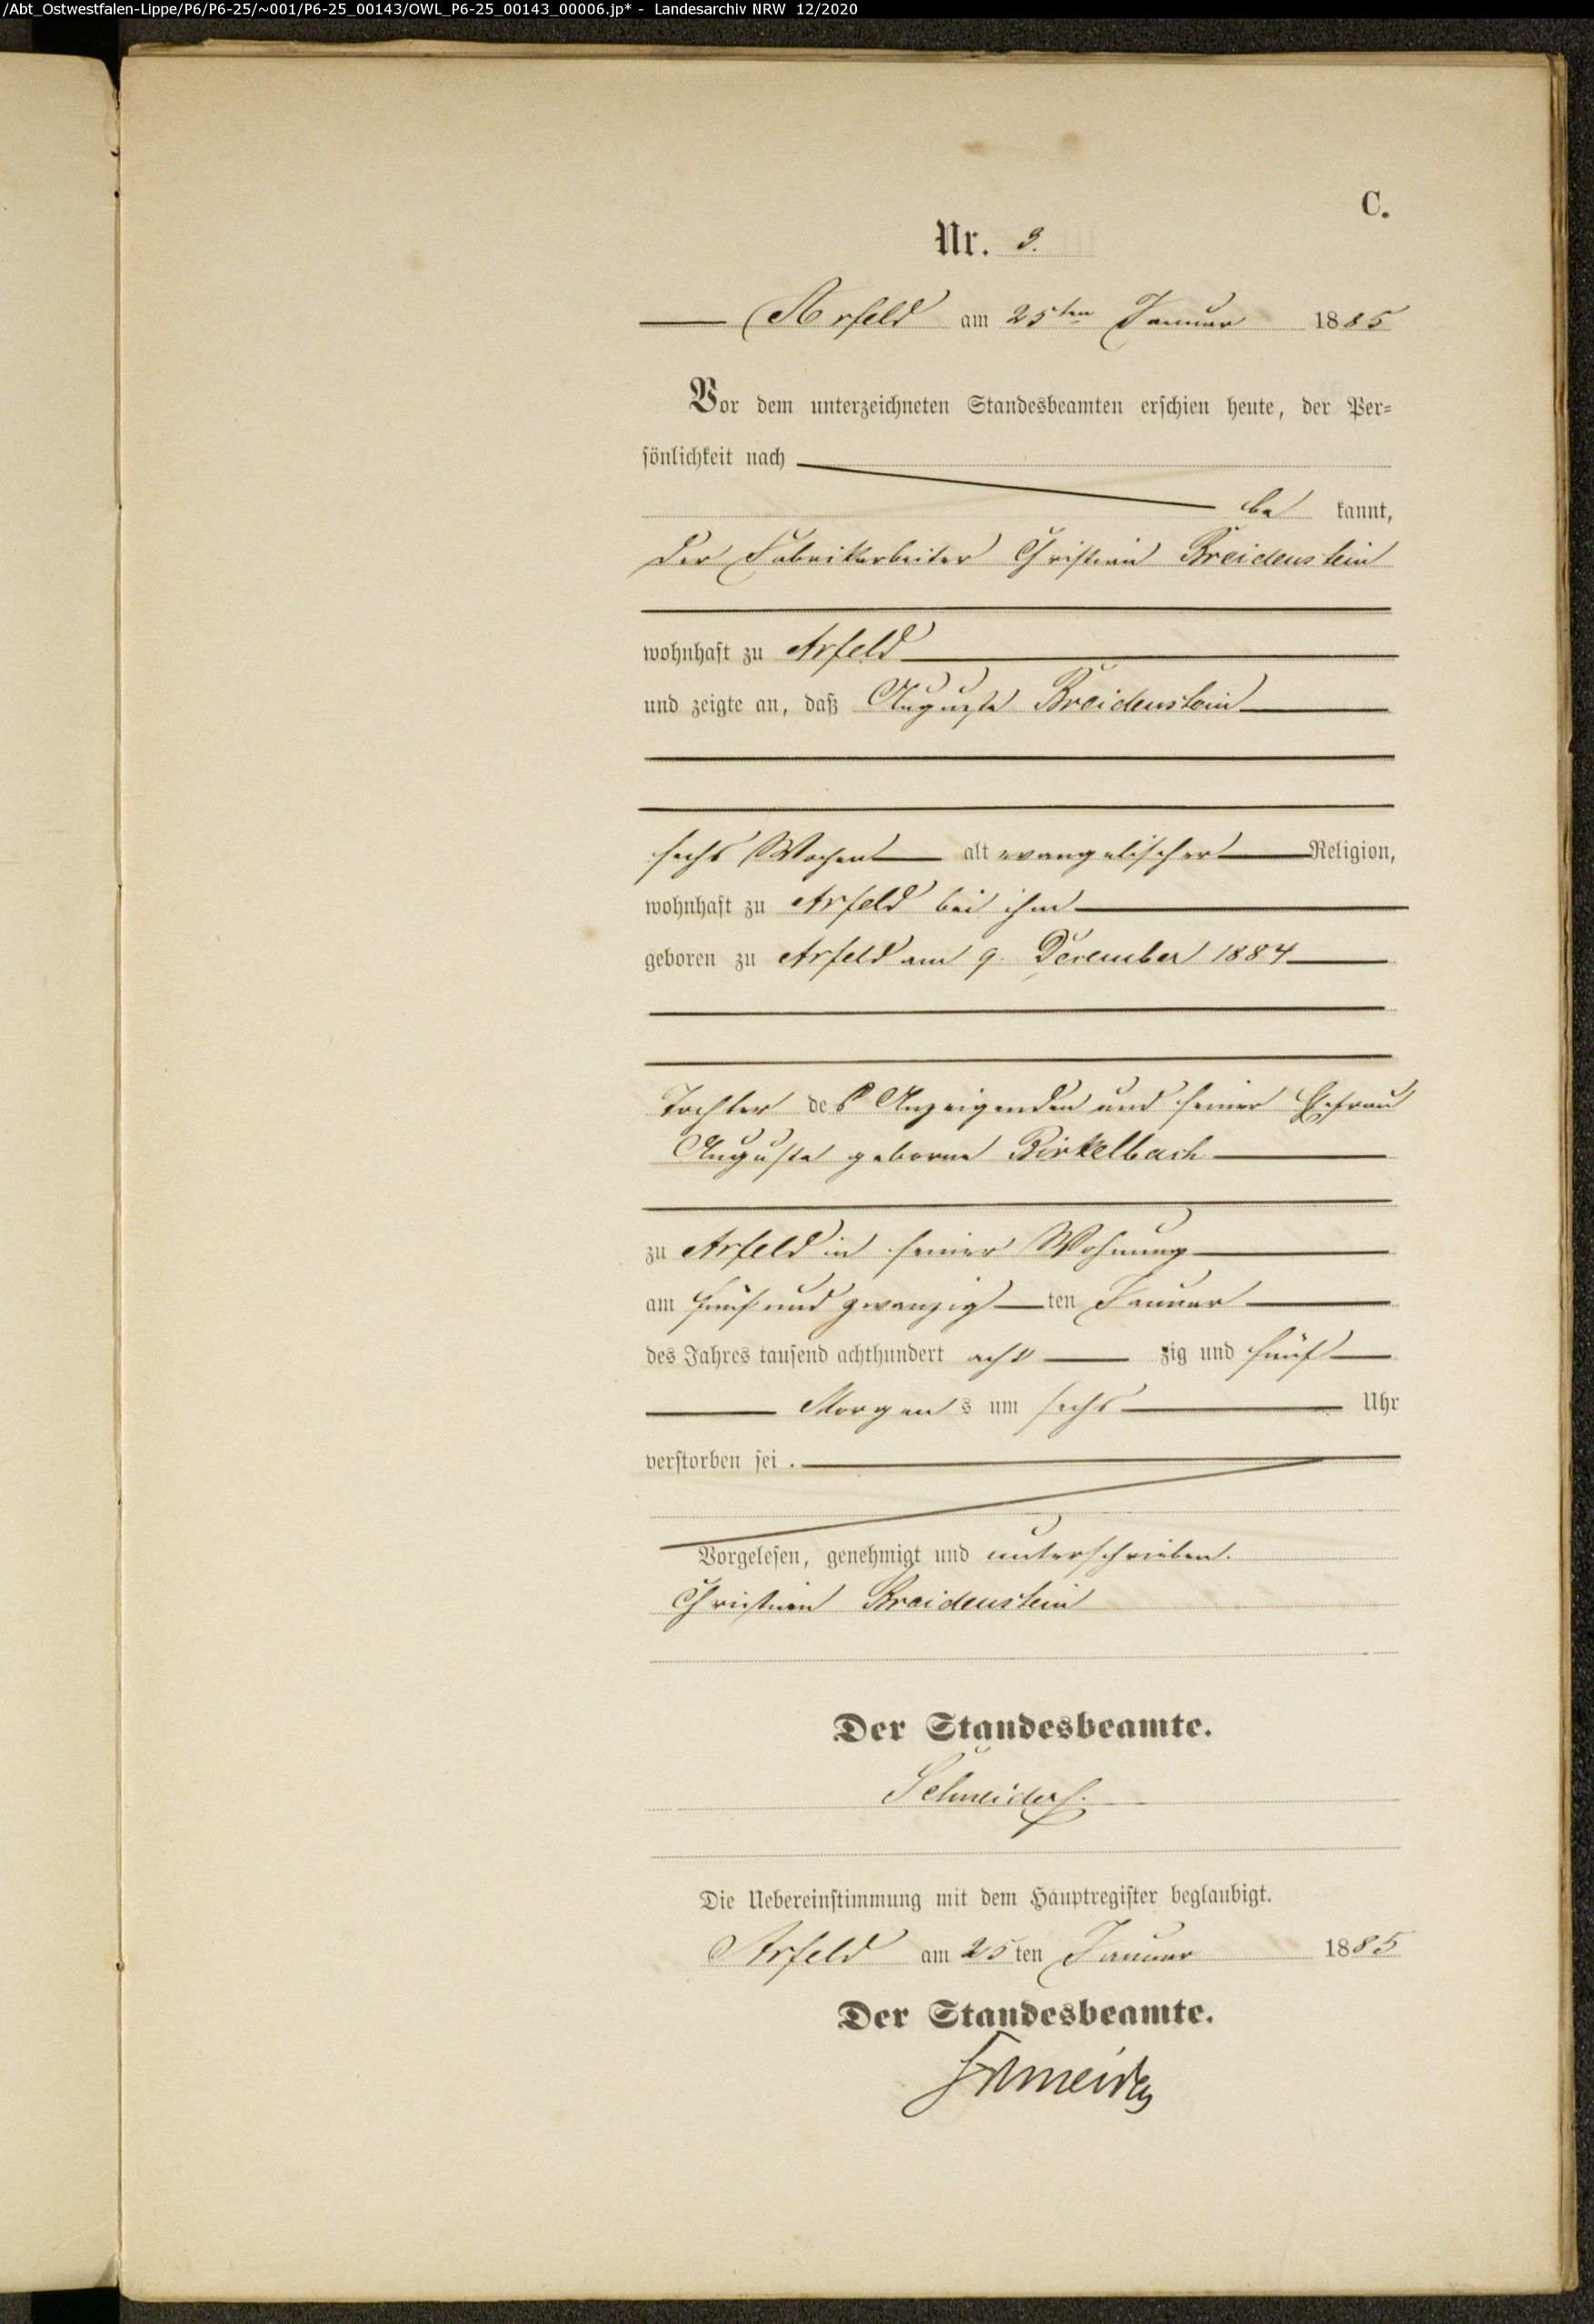 /Abt_Ostwestfalen-Lippe/P6/P6-25/~001/P6-25_00143/OWL_P6-25_00143_00006.jp* - Landesarchiv NRW 12/2020
C.
Nr. 3.
Arfeld am 25ten Januar 1885
Vor dem unterzeichneten Standesbeamten erschien heute, der Per=
sönlichkeit nach
be kannt,
der Fabrikarbeiter Christian Breidenstein
wohnhaft zu Arfeld
und zeigte an, daß Auguste Breidenstein
sechs Wochen alt evangelischer Religion,
wohnhaft zu Arfeld bei ihm
geboren zu Arfeld am 9. December 1884
Tochter des Anzeigenden und seiner Ehefrau
Auguste geborne Birkelbach
zu Arfeld in seiner Wohnung
am fünf und zwanzig ten Januar
des Jahres tausend achthundert acht zig und fünf
Morgens um sechs Uhr
verstorben sei.
Vorgelesen, genehmigt und unterschrieben.
Christian Breidenstein
Der Standesbeamte.
Schneider.
Die Uebereinstimmung mit dem Hauptregister beglaubigt.
Arfeld am 25ten Januar 1885
Der Standesbeamte.
Schneider